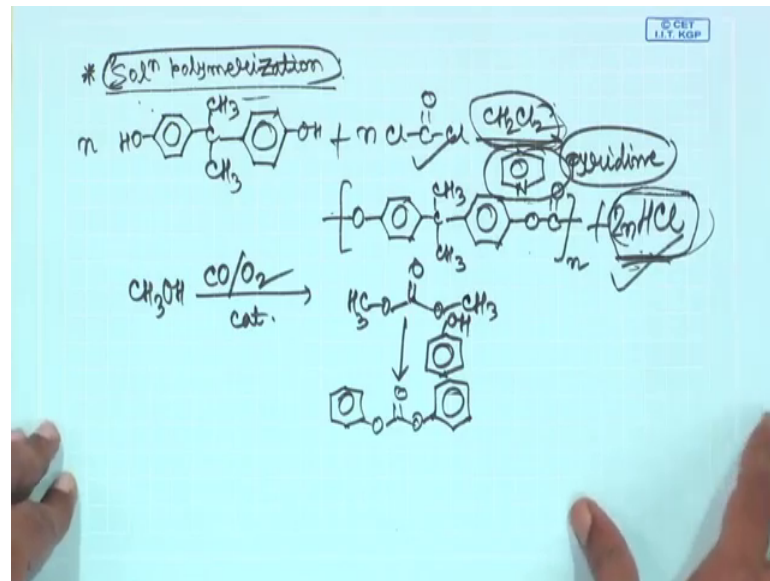 © CET
I.I.T. KGP
* Solⁿ polymerization
n HO CH3 C CH3 OH + n Cl-C-Cl O CH2Cl2 pyridine
N
[O CH3 C CH3 O C O]n + 2nHCl
CH3OH CO/O2 cat. H3C O O O CH3
OH
O O O